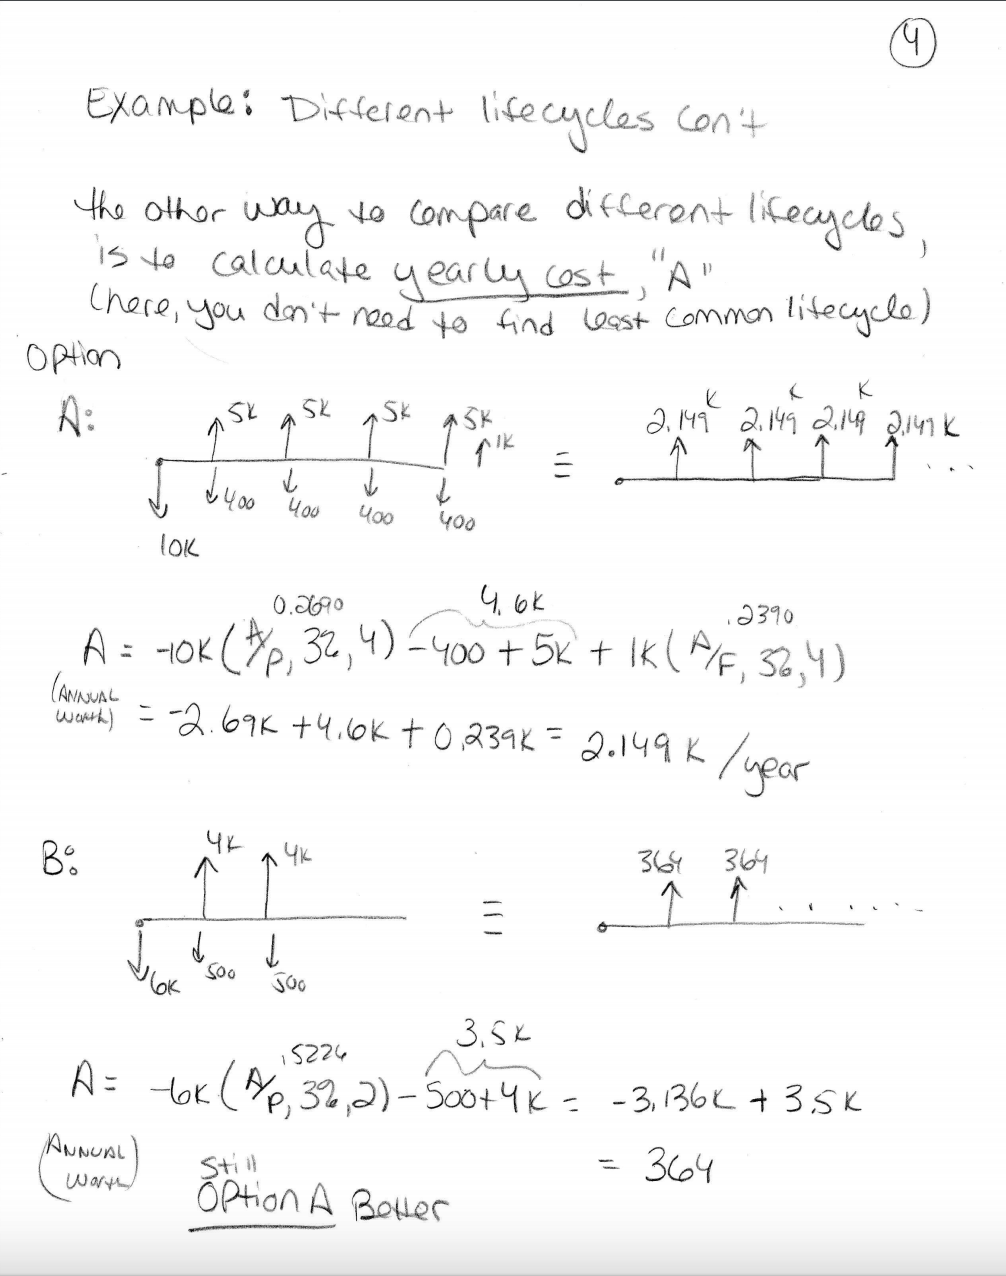 4
Example: Different lifecycles con't
the other way to compare different lifecycles,
is to calculate yearly cost, "A"
(here, you don't need to find least common lifecycle)
Option
A:
5K 5K 5K 5K 1K
400 400 400 400
10K
≡
2.149K 2.149K 2.149K 2.149K ...
0.2690 4.6K .2390
A = -10K (A/P, 3%, 4) - 400 + 5K + 1K (A/F, 3%, 4)
(ANNUAL Worth)
= -2.69K + 4.6K + 0.239K = 2.149K /year
B:
4K 4K
6K 500 500
≡
364 364 ......
.5226 3.5K
A = -6K (A/P, 3%, 2) - 500 + 4K = -3.136K + 3.5K
(ANNUAL Worth)
= 364
Still
Option A Better